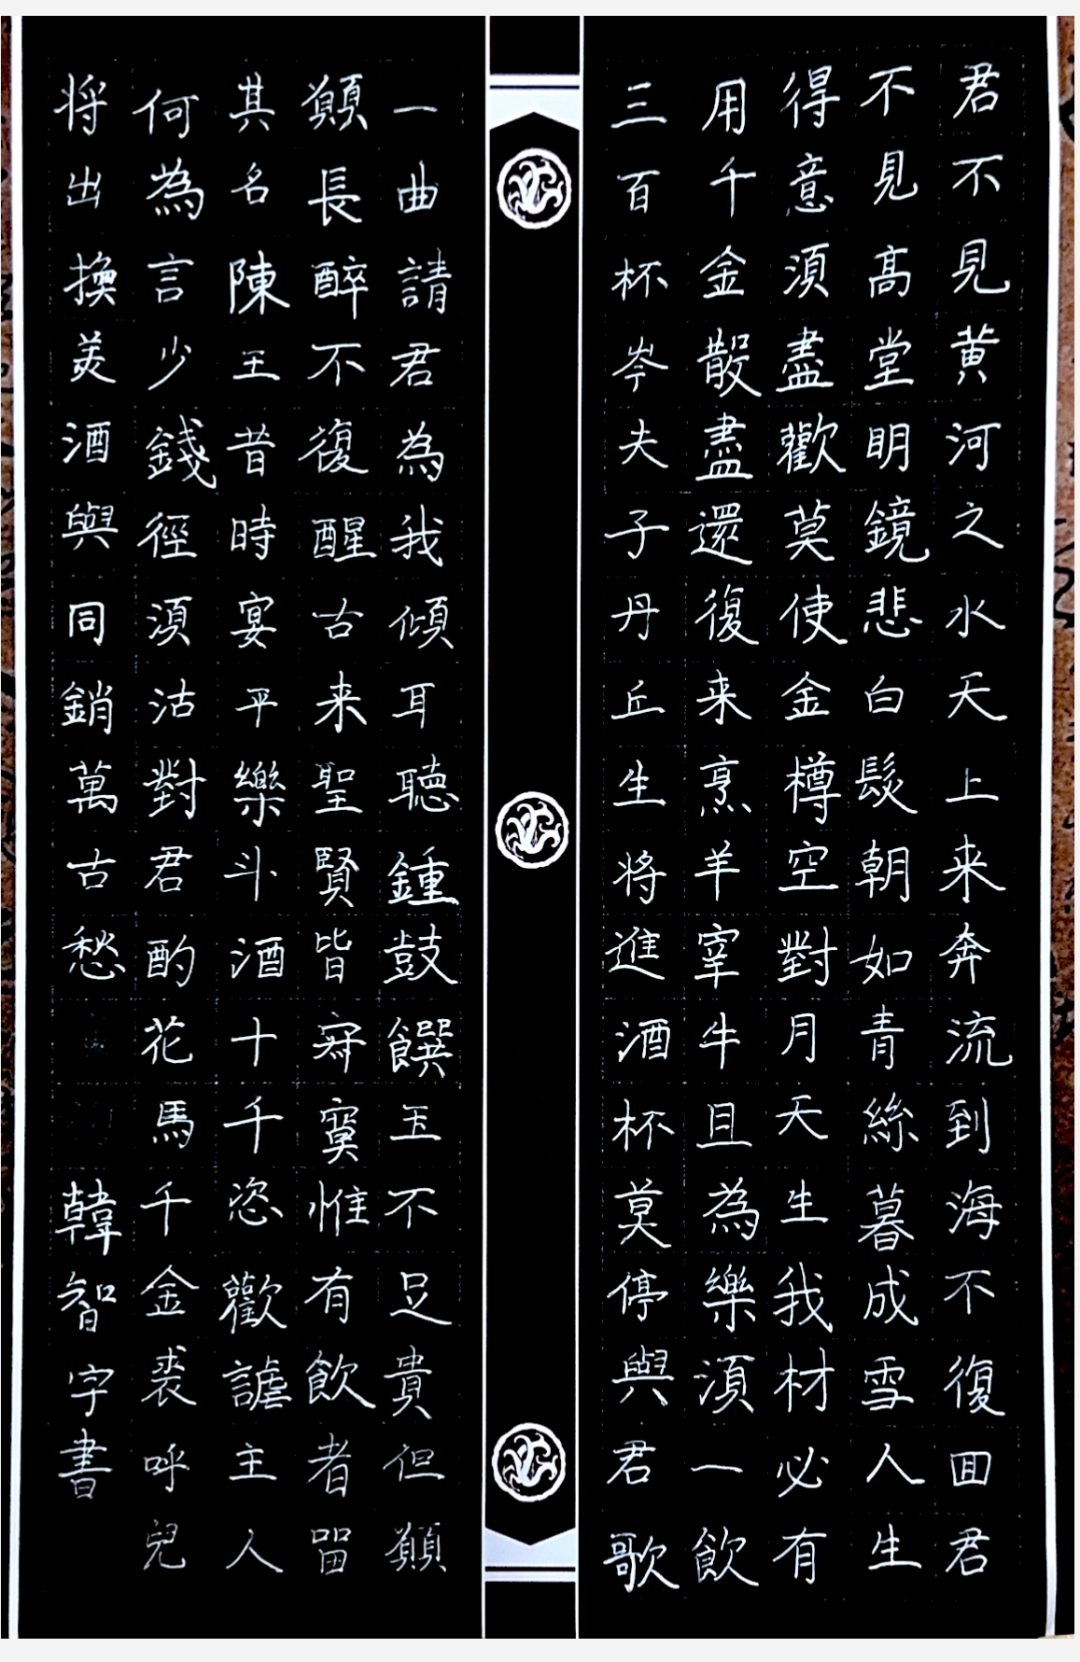 君不見黄河之水天上来奔流到海不復囬君
不見髙堂明鏡悲白髮朝如青絲暮成雪人生
得意須盡歡莫使金樽空對月天生我材必有
用千金散盡還復来烹羊宰牛且為樂須一飲
三百杯岑夫子丹丘生将進酒杯莫停與君歌
一曲請君為我傾耳聴鍾鼓饌玉不足貴但願
願長醉不復醒古来聖賢皆寂寞惟有飲者留
其名陳王昔時宴平樂斗酒十千恣歡謔主人
何為言少錢徑須沽對君酌花馬千金裘呼兒
将出換美酒與同銷萬古愁
韓智字書